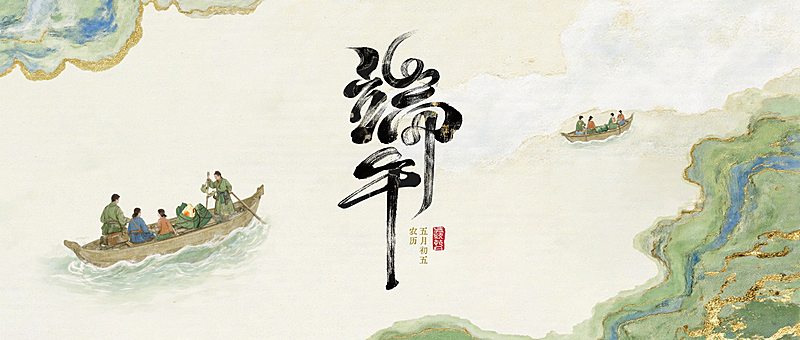 端午
五月初五
农历